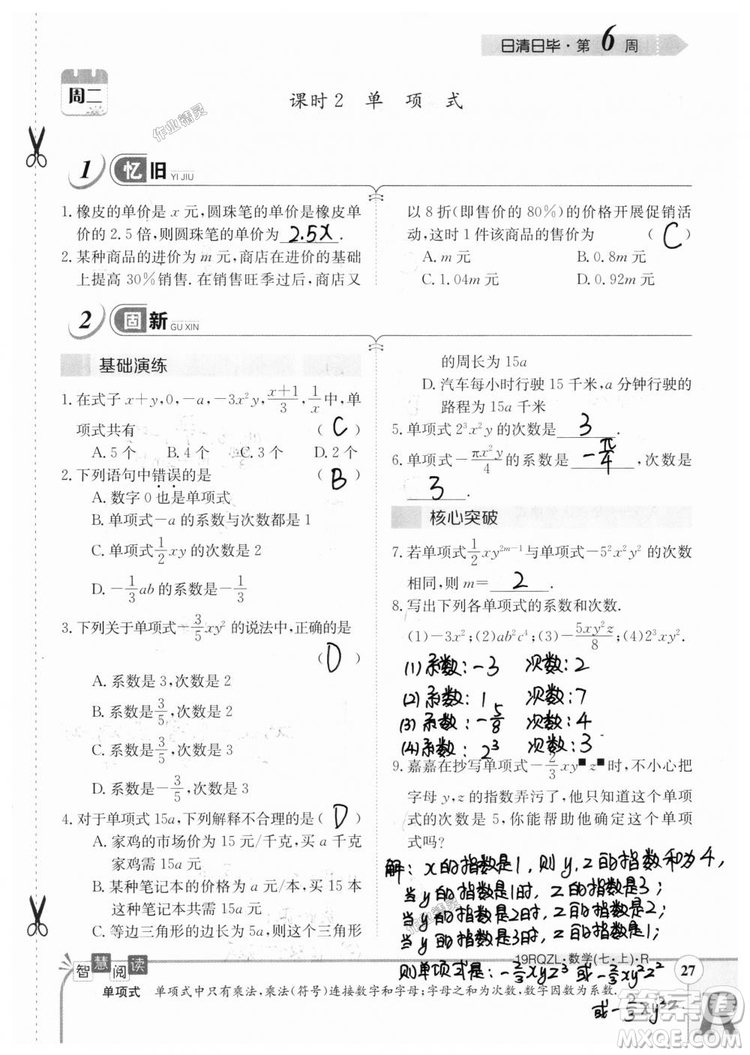 日清日毕·第6周
周二
课时2 单项式
作业精灵
1 忆旧 YI JIU
1. 橡皮的单价是 x 元，圆珠笔的单价是橡皮单
价的 2.5 倍，则圆珠笔的单价是 2.5x .
2. 某种商品的进价为 m 元，商店在进价的基础
上提高 30% 销售. 在销售旺季过后，商店又
以 8 折（即售价的 80%）的价格开展促销活
动，这时 1 件该商品的售价为 ( C )
A. m 元 B. 0.8m 元
C. 1.04m 元 D. 0.92m 元
2 固新 GU XIN
基础演练
1. 在式子 x+y, 0, -a, -3x²y, (x+1)/3, 1/x 中，单
项式共有 ( C )
A. 5 个 B. 4 个 C. 3 个 D. 2 个
2. 下列语句中错误的是 ( B )
A. 数字 0 也是单项式
B. 单项式 -a 的系数与次数都是 1
C. 单项式 1/2 xy 的次数是 2
D. -1/3 ab 的系数是 -1/3
3. 下列关于单项式 -3/5 xy² 的说法中，正确的是
( D )
A. 系数是 3，次数是 2
B. 系数是 3/5，次数是 2
C. 系数是 3/5，次数是 3
D. 系数是 -3/5，次数是 3
4. 对于单项式 15a，下列解释不合理的是 ( D )
A. 家鸡的市场价为 15 元/千克，买 a 千克
家鸡需 15a 元
B. 某种笔记本的价格为 a 元，买 15 本这样
的笔记本需 15a 元
C. 等边三角形的边长为 5a，则这个三角形
的周长为 15a
D. 汽车每小时行驶 15 千米，a 分钟行驶的
路程为 15a 千米
5. 单项式 2³x²y 的次数是 3 .
6. 单项式 -πx²y/4 的系数是 -π/4，次数是
3 .
核心突破
7. 若单项式 1/2 xy²ᵐ⁻¹ 与单项式 -5²x²y² 的次数
相同，则 m= 2 .
8. 写出下列各单项式的系数和次数.
(1) -3x²; (2) ab²c⁴; (3) -5xy²z/8; (4) 2³x²yz².
(1) 系数：-3 次数：2
(2) 系数：1 次数：7
(3) 系数：-5/8 次数：4
(4) 系数：2³
9. 嘉嘉在抄写单项式 -2/3 xy■z■ 时，不小心把
字母 y, z 的指数弄污了，他只知道这个单项
式的次数是 5，你能帮助他确定这个单项
式吗？
解：x的指数是1，则y,z的指数和为4，
当y的指数是1时，z的指数是3；
当y的指数是2时，z的指数是2；
当y的指数是3时，z的指数是1；
则单项式是-2/3xyz³或-2/3xy²z²
或-2/3xy³z.
智慧阅读
19RQZL·数学(七·上)·R 27
单项式 单项式中只有乘法，乘法(符号)连接数字和字母；字母之和为次数，数字因数为系数.